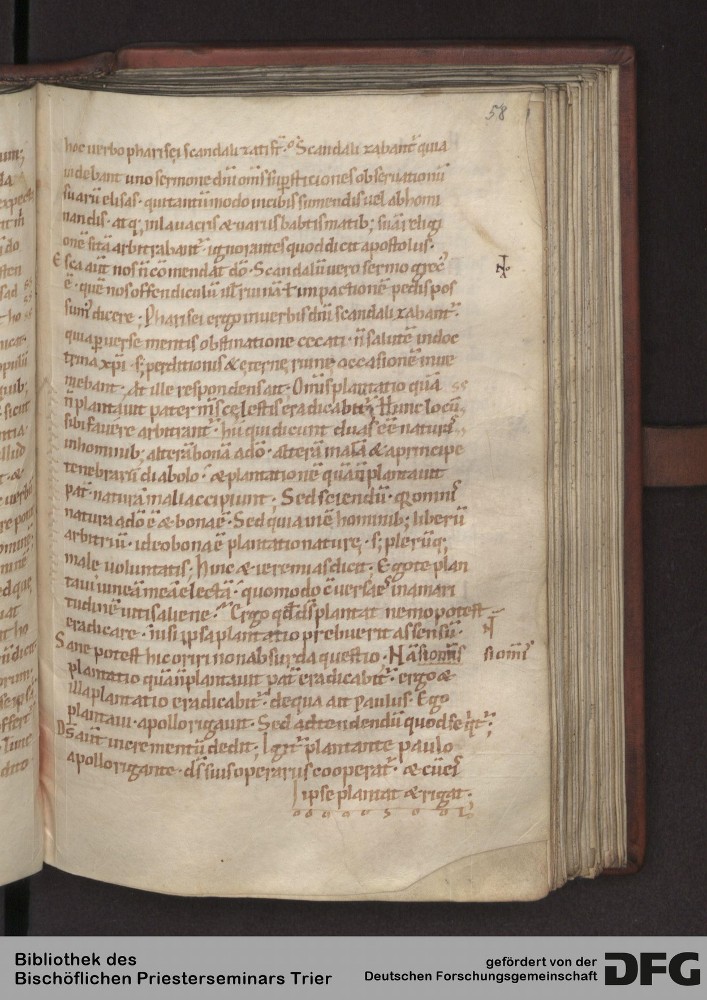 58
hoc uerbo pharisęi scandalizati st̄. Scandalizabant᷒ quia
uidebant uno sermone dn̄i om̄s supsticiones obseruationū
suarū elisas. qui tantū modo in cibis sumendis uel abhomi
nandis. atq; in lauacris & uariis babtismatib; suā religi
onē sitā arbitrabant᷒. ignorantes quod dicit apostolus.
Esca aut̄ nos n̄ com̄endat dō. Scandalū uero sermo gręc᷒
ē. quē nos offendiculū ul̄ ruinā ł inpactionē pedis pos
sum᷒ dicere; Pharisei ergo in uerbis dn̄i scandalizabant᷒.
quia puerse mentis obstinatione cęcati. n̄ salutē in doc
trina xp̄i. s; perditionis & ęternę ruinę occasionē inue
niebant. At ille respondens ait. Om̄is plantatio quā
n̄ plantauit pater m̄s cęlestis eradicabit᷒. Hunc locū
sibi fauere arbitrant᷒. hii qui dicunt duas ēē naturas
in hominib; alterā bonā a dō. alterā malā & a principe
tenebrarū diabolo. & plantationē quā n̄ plantauit
pat̄ naturā mali accipiunt; Sed sciendū. qd omnis
natura a dō ē & bona ē. Sed quia inē hominib; liberū
arbitriū. ideo bona ē plantatio naturę. s; plerūq;
male uoluntatis; Hinc & ieremias dicit. Ego te plan
taui uineā meā electā. quomodo cuersa es in amari
tudinē uitis alienę. Ergo qd ds̄ plantat nemo potest
eradicare. nisi ipsa plantatio prębuerit assensū.
Sane potest hic oriri non absurda questio. Nā si om̄is si om̄is
plantatio quā n̄ plantauit pat̄ eradicabit᷒. ergo &
illa plantatio eradicabit᷒. de qua ait paulus. Ego
plantaui. apollo rigauit. Sed adtendendū quod seqit᷒;
Ds̄ aut̄ incrementū dedit; Igit᷒ plantante paulo
apollo rigante. ds̄ suis operariis cooperat᷒. & cū eis
ipse plantat & rigat.
Bibliothek des
Bischöflichen Priesterseminars Trier
gefördert von der
Deutschen Forschungsgemeinschaft
DFG